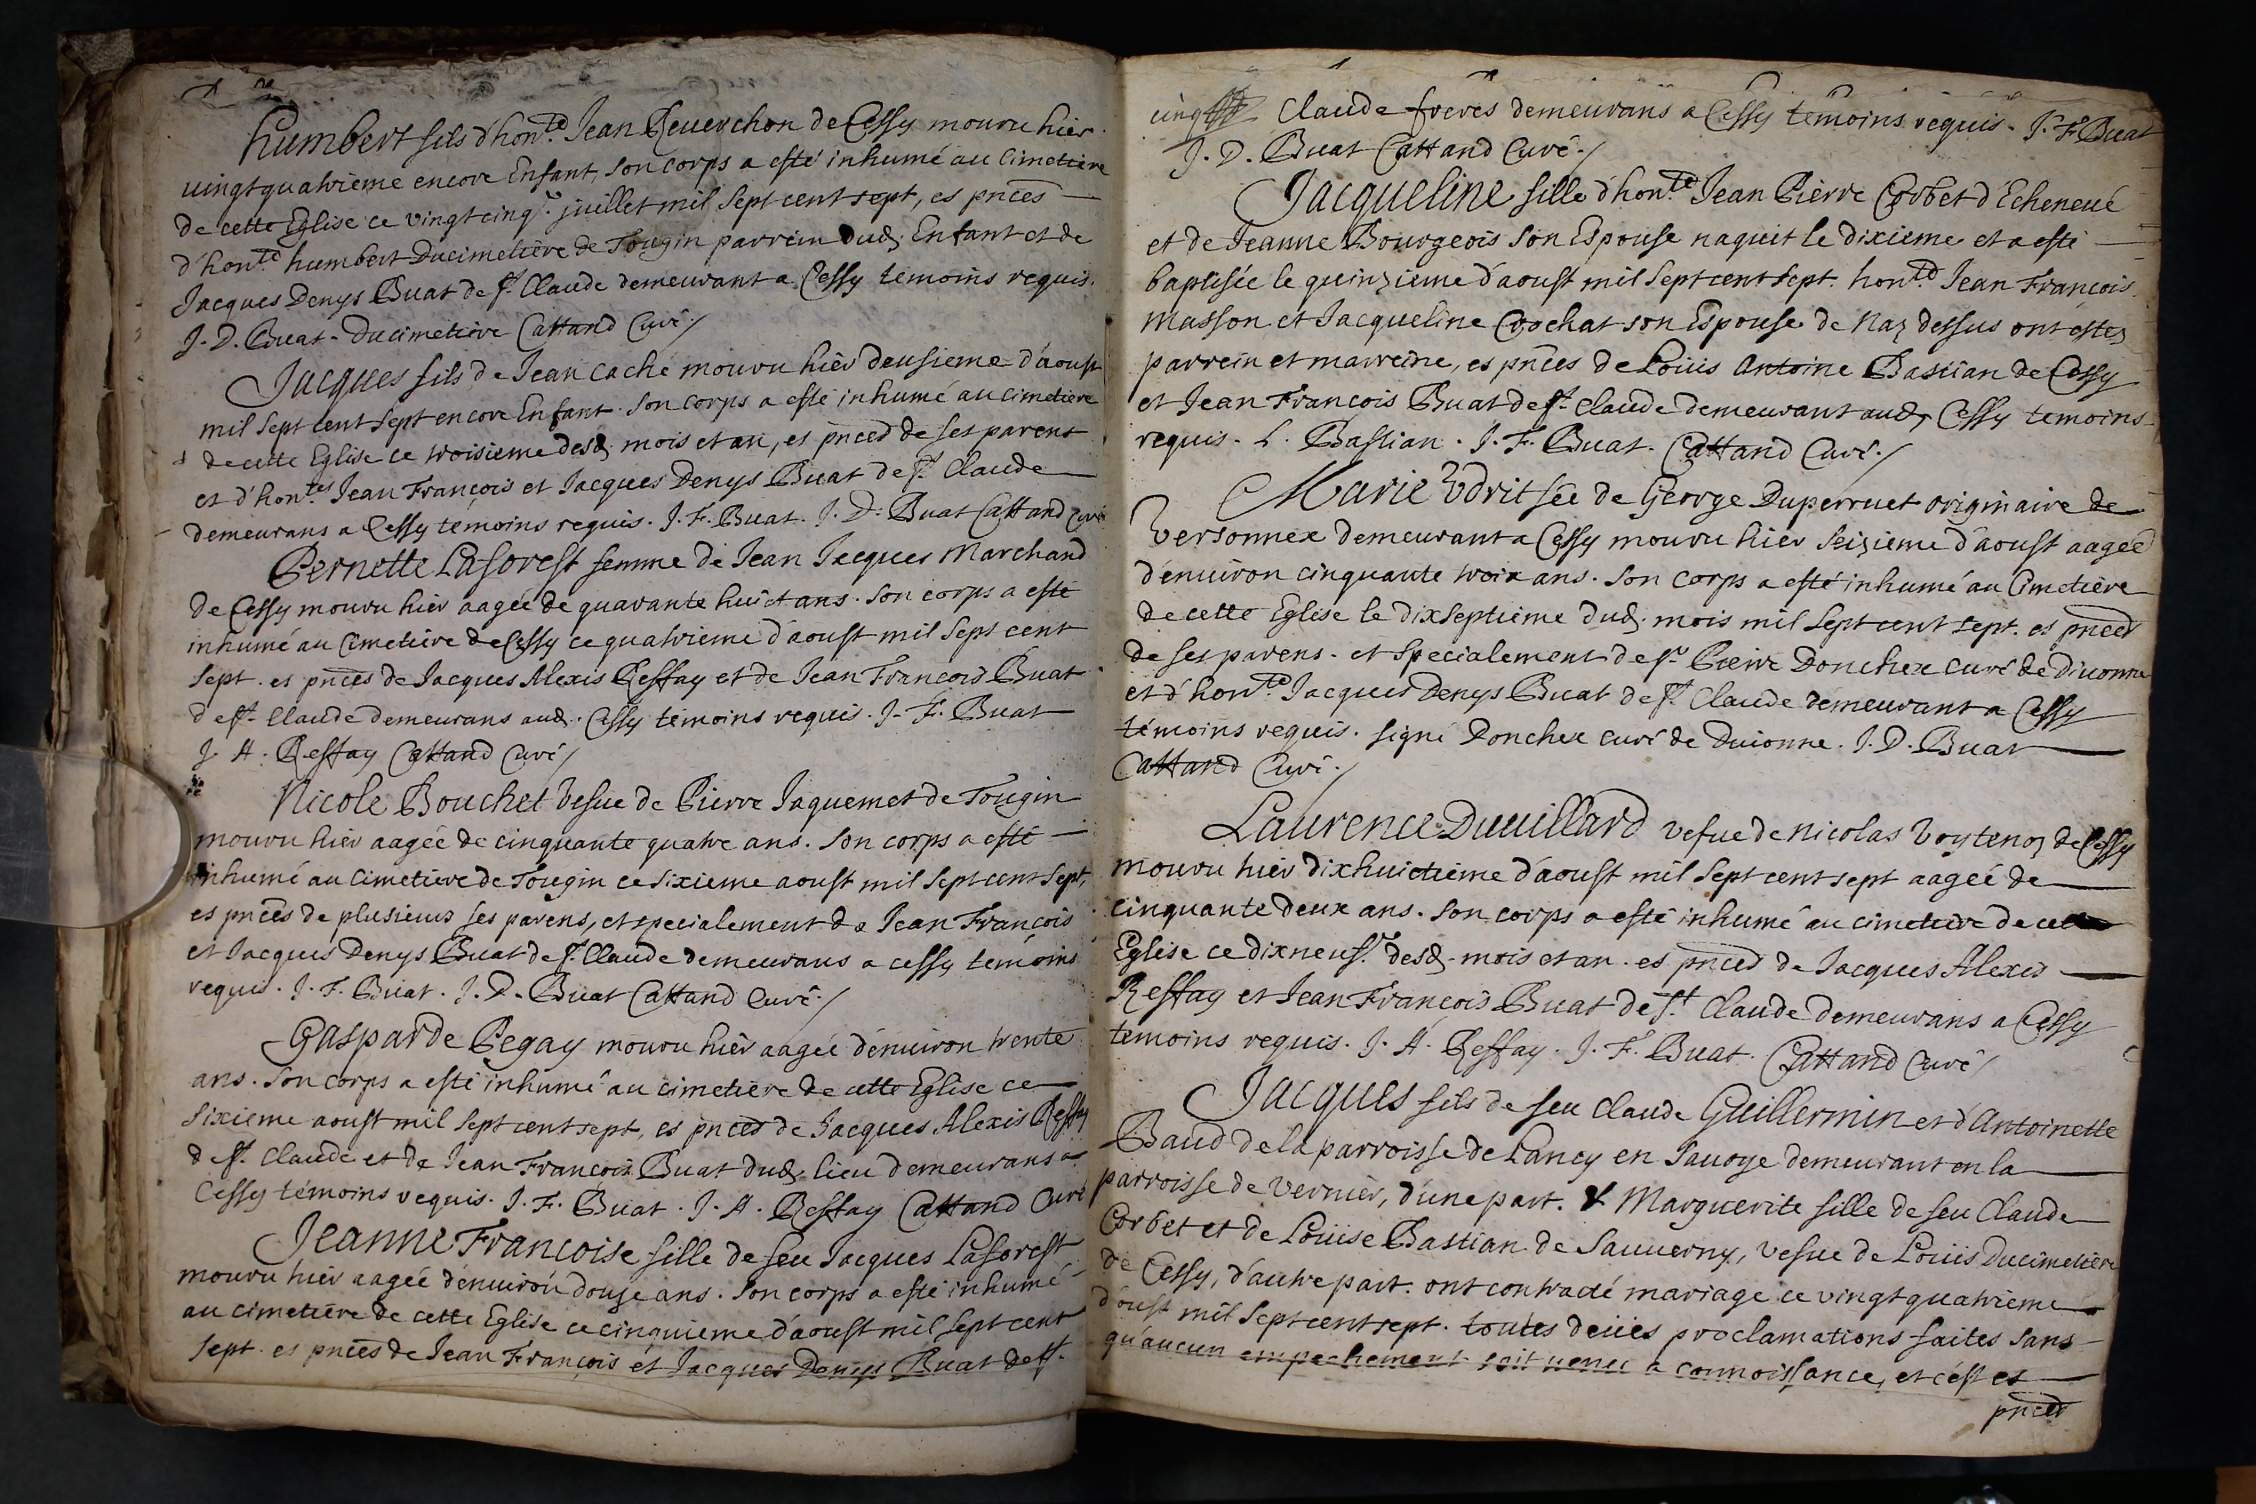 humbert fils d'hon.te Jean Peuerchon de Cessy mouru hier
uingtquatrieme encore Enfant, son corps a esté inhumé au Cimetiere
de cette Eglise ce vingtcinq.e juillet mil Sept cent sept, es pnces
d'hon.te humbert Ducimetiére de Tougin parrein dud. Enfant et de
Jacques Denys Buat de St. Claude demeurant a Cessy temoins requis.
J. D. Buat. Ducimetiére Cattand Curé./
Jacques fils de Jean caché mouru hiér deusieme d'aoust
mil Sept cent Sept encore Enfant. Son corps a esté inhumé au cimetiere
de cette Eglise ce troisieme desd. mois et an, es pnces de ses parens
et d'hon.tes Jean François et Jacques Denys Buat de St. Claude
demeurans a Cessy temoins requis. J. F. Buat. J. D. Buat Cattand Curé
Pernette Laforest femme de Jean Jacques Marchand
de Cessy mouru hier aagée de quarante huict ans. Son corps a esté
inhumé au Cimetiere de Cessy ce quatrieme d'aoust mil Sept cent
sept. es pnces de Jacques Alexis Reffay et de Jean François Buat
de St. Claude demeurans aud. Cessy témoins requis. J. F. Buat
J. A. Reffay Cattand Curé/
Nicole Bouchet vefue de Pierre Jaquemet de Tougin
mouru hier aagée de cinquante quatre ans. Son corps a esté
inhumé au cimetiere de Tougin ce sixieme aoust mil Sept cent Sept,
es pnces de plusieurs ses parens, et specialement de Jean François
et Jacques Denys Buat de St. Claude demeurans a cessy temoins
requis. J. F. Buat. J. D. Buat Cattand Curé./
Gasparde Pegay mouru hiér aagée d'enuiron trente
ans. Son corps a esté inhumé au cimetiere de cette Eglise ce
sixieme aoust mil Sept cent sept, es pnces de Jacques Alexis Reffay
de St. Claude et de Jean François Buat dud. lieu demeurans a
Cessy témoins requis. J. F. Buat. J. A. Reffay Cattand Curé
Jeanne Françoise fille de feu Jacques Laforest
mouru hier aagée d'enuiron douze ans. Son corps a esté inhumé
au cimetiere de cette Eglise ce cinquieme d'aoust mil Sept cent
sept. es pnces de Jean François et Jacques Denys Buat de St.
Claude freres demeurans a Cessy témoins requis. J. F. Buat
J. D. Buat Cattand Curé./
Jacqueline fille d'hon.te Jean Piérre Corbet d'Echeneué
et de Jeanne Bourgeois Son Espouse naquit le dixieme et a esté
baptisée le quinzieme d'aoust mil Sept cent Sept. hon.te Jean François
Masson et Jacqueline Crochat son Espouse de Naz dessus ont estez
parrein et marreine, es pnces de Loüis Antoine Bastian de Cessy
et Jean François Buat de St. Claude demeurant aud. Cessy temoins
requis. L. Bastian. J. F. Buat. Cattand Curé./
Marie Vdrit fée de George Duperruet originaire de
Versonnex demeurant a Cessy mouru hiér seizieme d'aoust aagée
d'enuiron cinquante trois ans. Son corps a esté inhumé au Cimetiére
de cette Eglise le dixseptiéme dud. mois mil Sept cent sept. es pnces
de ses parens. et Specialement de Sr. Pierre Donchex curé de diuonne
et d'hon.te Jacques Denys Buat de St. Claude demeurant a Cessy
témoins requis. signé Donchex curé de Diuonne. J. D. Buat
Cattand Curé./
Laurence Duuillard vefue de Nicolas Voytenoz de Cessy
mouru hiér dixhuictieme d'aoust mil Sept cent sept aagée de
cinquante deux ans. Son corps a esté inhumé au cimetiere de cette
Eglise ce dixneuf.e desd. mois et an. es pnces de Jacques Alexis
Reffay et Jean François Buat de St. Claude demeurans a Cessy
temoins requis. J. A. Reffay. J. F. Buat. Cattand Curé/
Jacques fils de feu Claude Guillermin et d'Antoinette
Baud de la parroisse de Lancy en Sauoye demeurant en la
parroisse de Verniér, d'une part. & Marguerite fille de feu Claude
Corbet et de Loüise Bastian de Sauuerny, vefue de Loüis Ducimetiére
de Cessy, d'autre part. ont contracté mariage ce vingtquatrieme
d'oust mil Sept cent sept. toutes deües proclamations faites sans
qu'aucun empechement soit uenu a connoissance, et c'est es
pnces